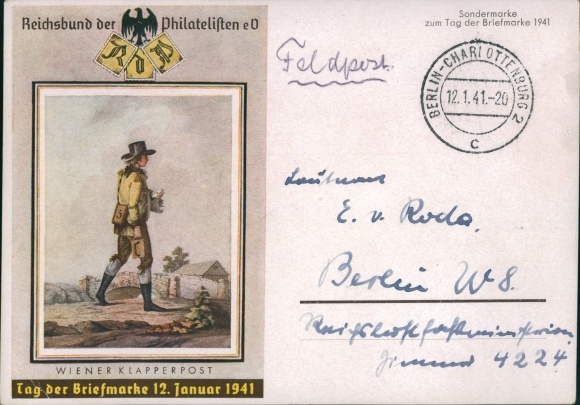 Reichsbund der Philatelisten e V
R d P
WIENER KLAPPERPOST
Tag der Briefmarke 12. Januar 1941
Sondermarke
zum Tag der Briefmarke 1941
Feldpost.
BERLIN-CHARLOTTENBURG 2
12.1.41.-20
c
Leutnant
E. v. Roda.
Berlin W8.
Reichsluftfahrtministerium
Zimmer 4224